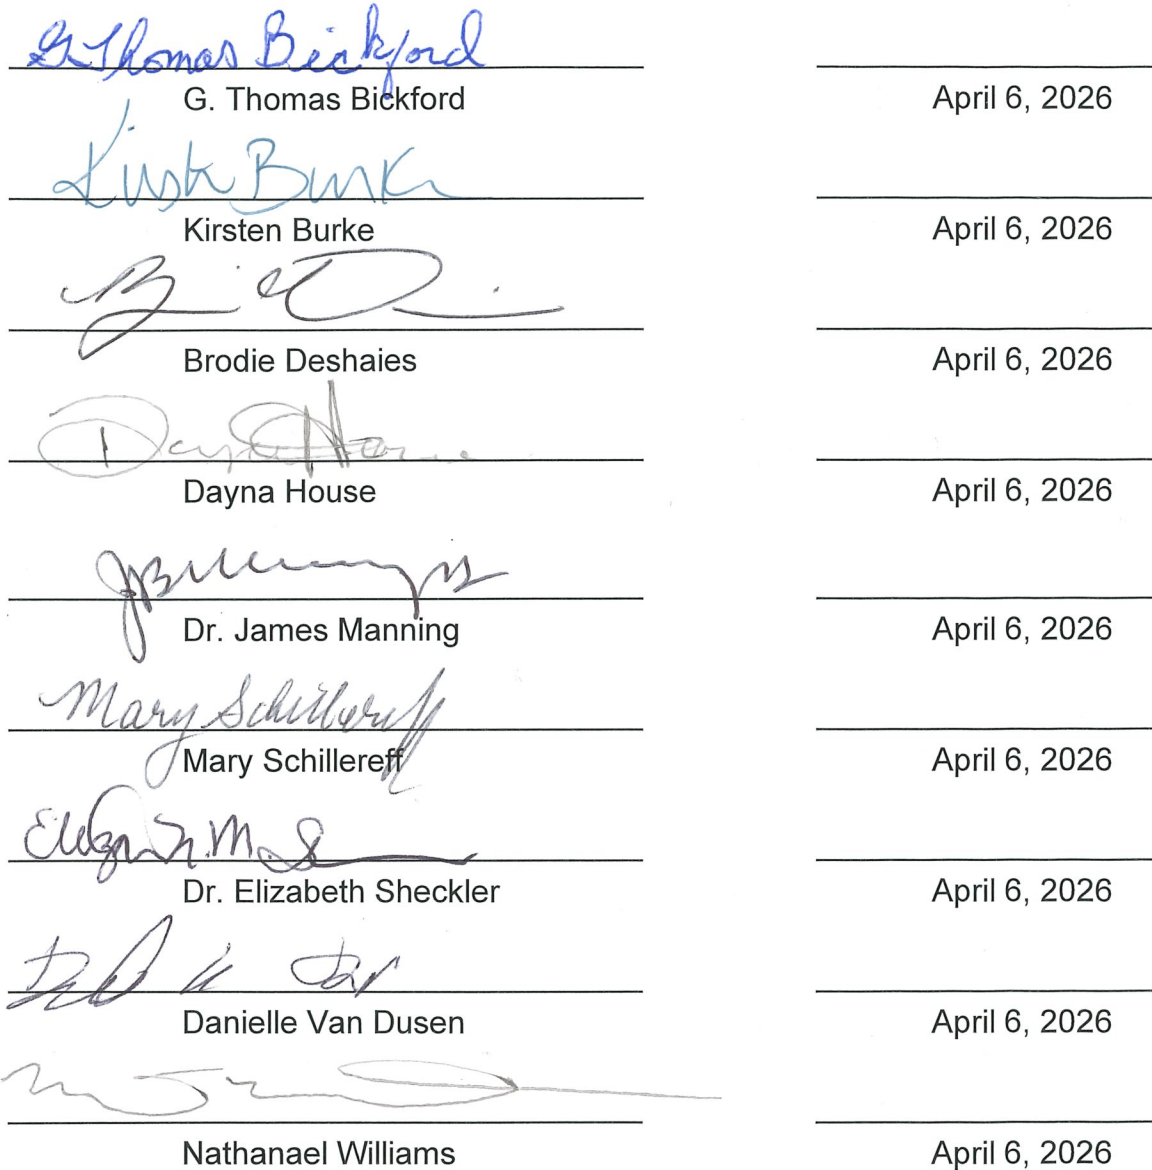 G. Thomas Bickford
G. Thomas Bickford April 6, 2026
Kirsten Burke
Kirsten Burke April 6, 2026
Brodie Deshaies April 6, 2026
Dayna House
Dayna House April 6, 2026
Dr. James Manning April 6, 2026
Mary Schillereff
Mary Schillereff April 6, 2026
Dr. Elizabeth Sheckler April 6, 2026
Danielle Van Dusen April 6, 2026
Nathanael Williams April 6, 2026